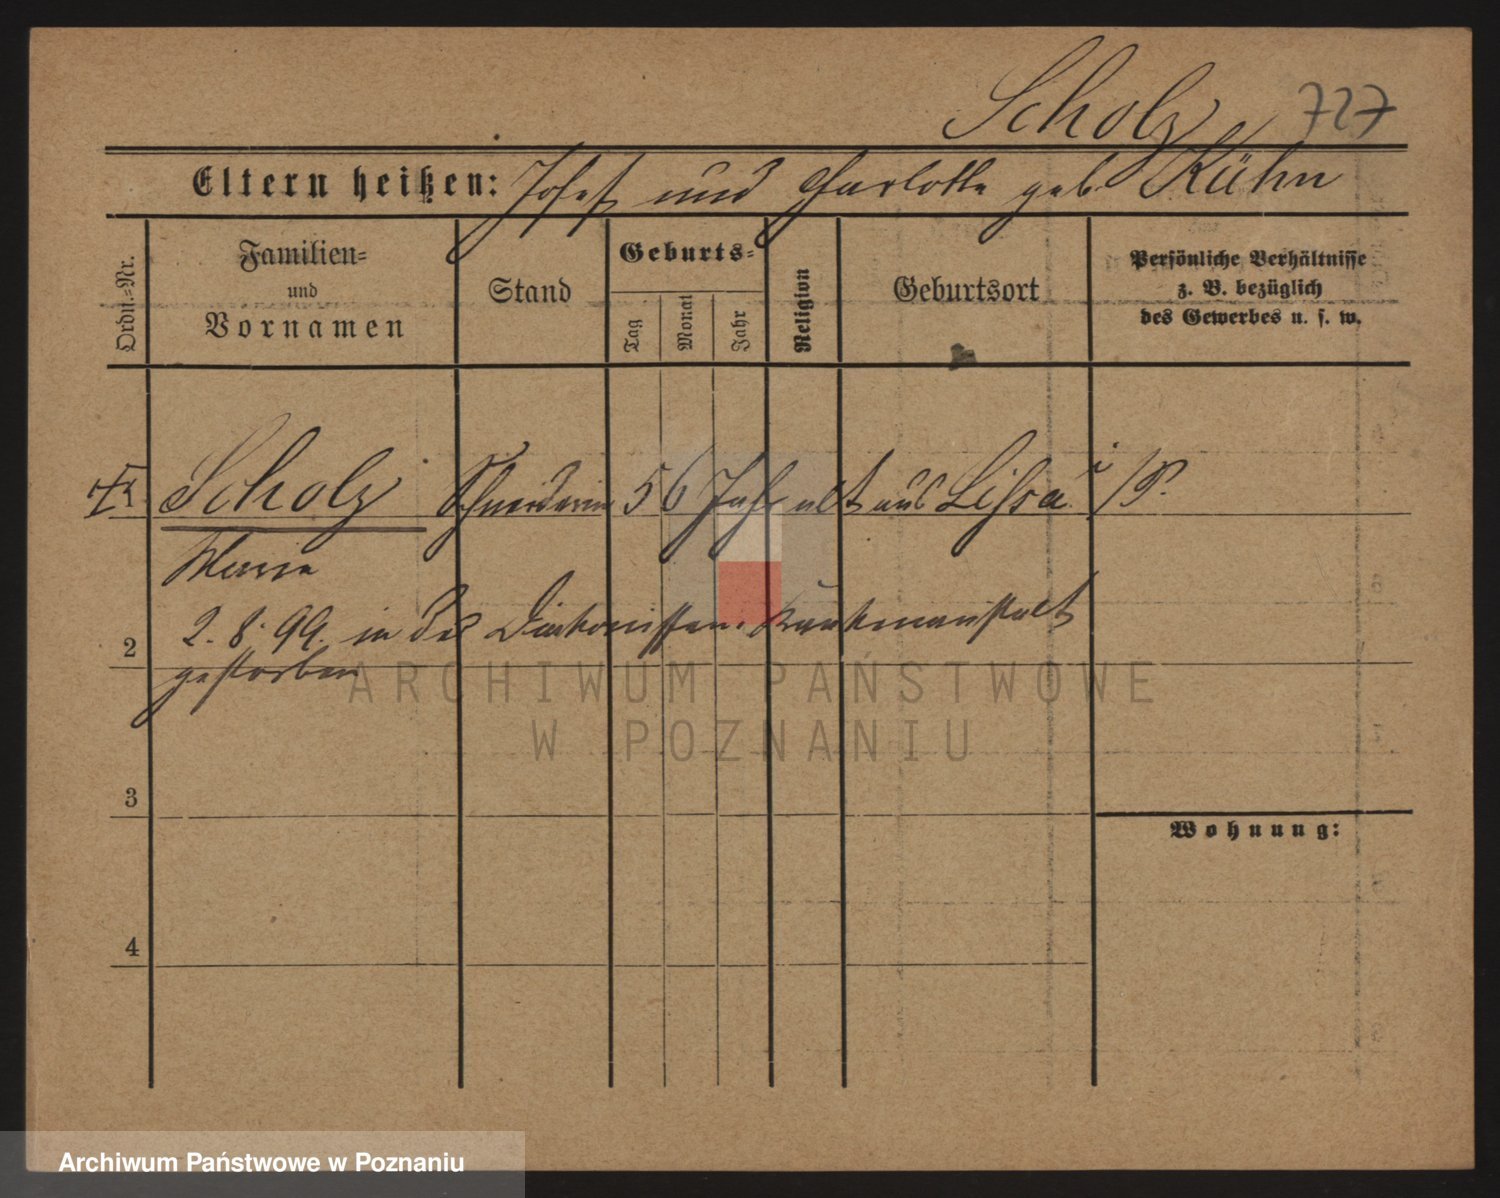 Scholz 727
Eltern heißen: Josef und Charlotte geb. Kühn
Ordn.-Nr.
Familien-
und
Vornamen
Stand
Geburts-
Tag
Monat
Jahr
Religion
Geburtsort
Persönliche Verhältnisse
z. B. bezüglich
des Gewerbes u. s. w.
Scholz Schneiderin 56 Jahr alt aus Lissa i/P.
Marie
2. 8. 99. in der Diakonissen-Krankenanstalt
2
gestorben
ARCHIWUM PAŃSTWOWE
W POZNANIU
3
Wohnung:
4
Archiwum Państwowe w Poznaniu